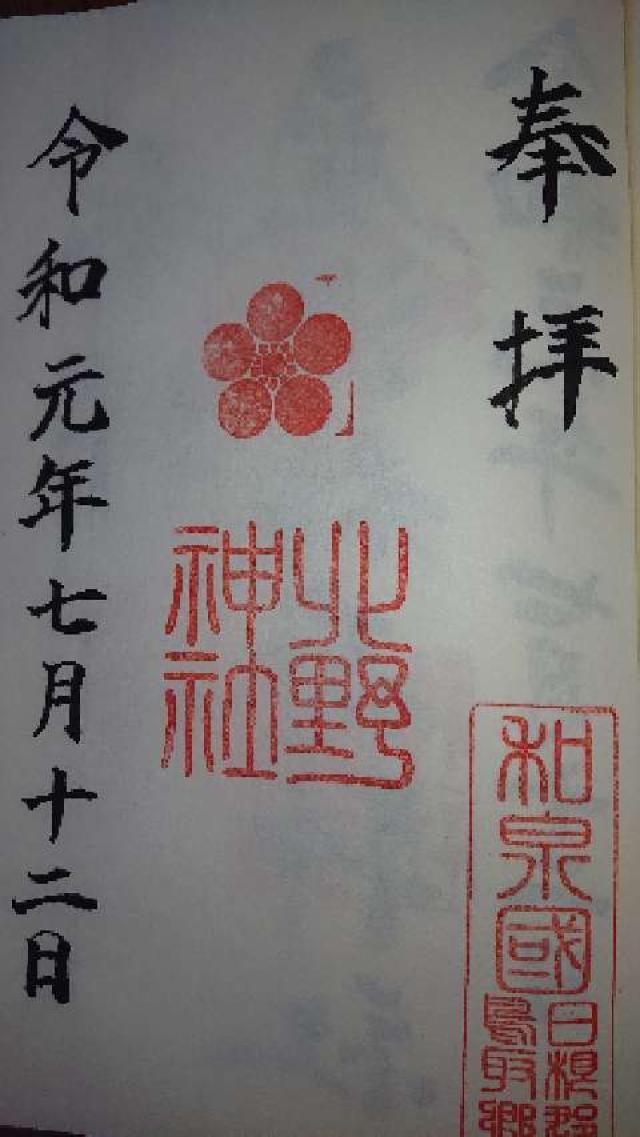 奉拝
和泉國
日根郡
鳥取郷
北野
神社
令和元年七月十二日